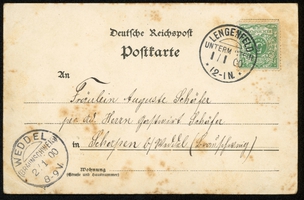 Deutsche Reichspost
Postkarte
LENGENFELD
UNTERM
1/1 00
12-1N.
An
Fräulein Auguste Schäfer
Herrn Gastwirt Schäfer
in Scharpen b/Weddel (Braunschweig)
WEDDEL
(Braunschweig)
2 1 00
8-9V.
Wohnung
(Straße und Hausnummer)